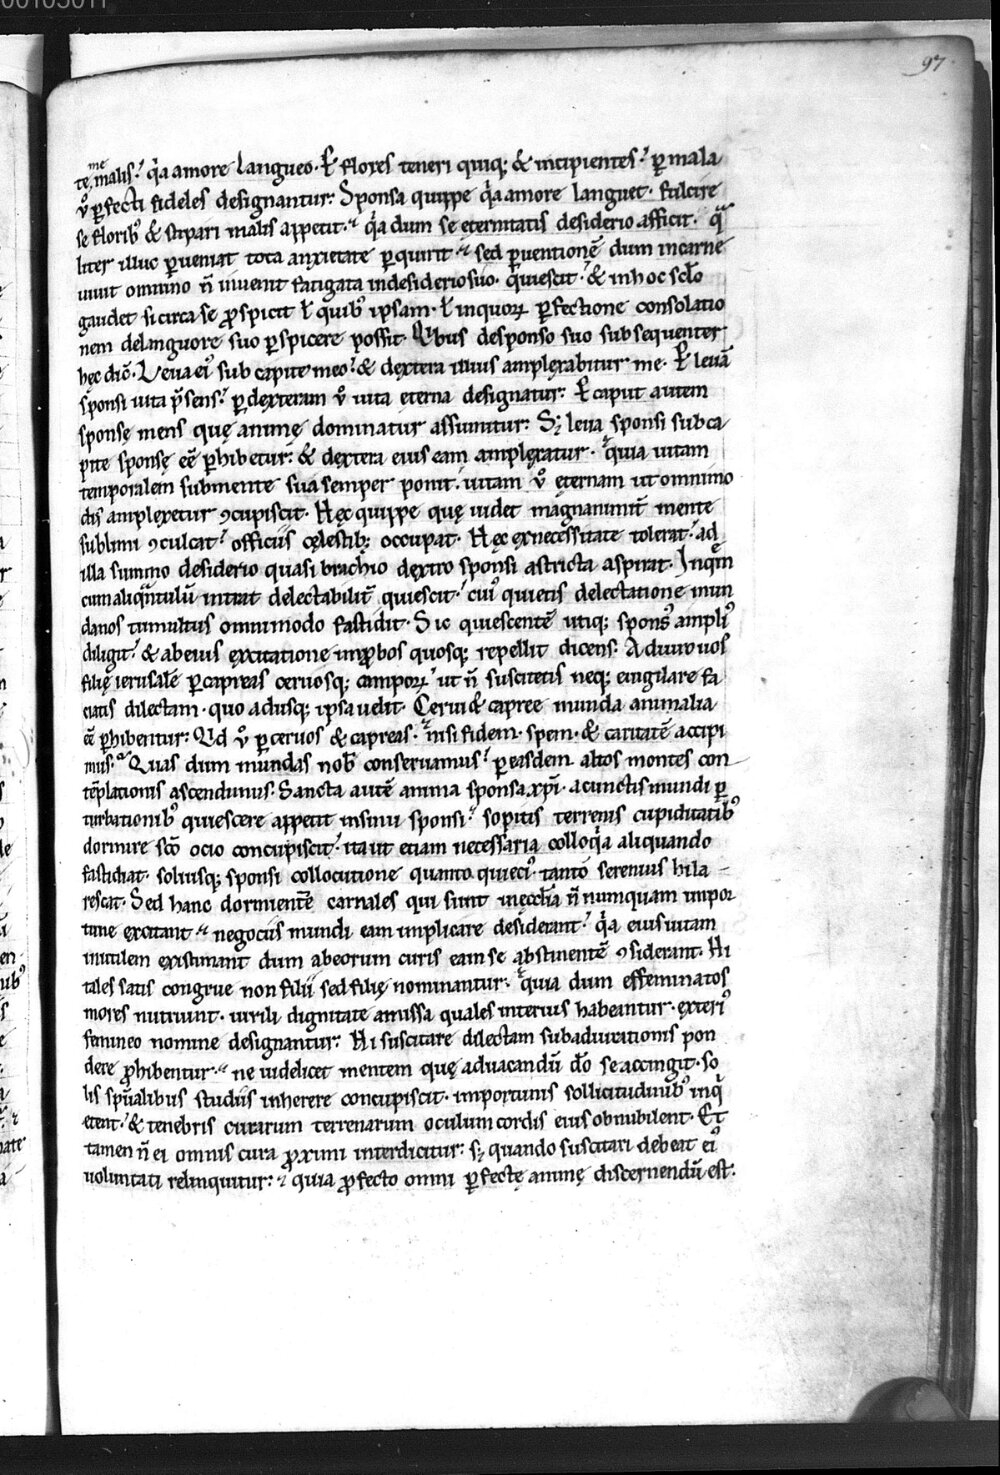 97
te me malis. q̇a amore langueo. Per flores teneri quiq; & incipientes. ꝑ mala
ỽ ꝑfecti fideles designantur. Sponsa quippe q̇a amore languet. fulcire
se florib; & stipari malis appetit. q̇a dum se eternitatis desiderio afficit. qa
liter illuc ꝑueniat tota anxietate ꝑquirit. sed ꝑuentionē dum in carne
uiuit omnino n̄ inuenit fatigata in desiderio suo. quiescit. & in hoc solo
gaudet si circa se ꝓspicit ł quib; ipsam. ł in quoꝝ ꝑfectione consolatio
nem de languore suo ꝑspicere possit. Quibus de sponso suo subsequenter
hęc dic̄. Leua ei' sub capite meo. & dextera illius amplexabitur me. Per leuā
sponsi uita p̄sens. ꝑ dexteram ỽ uita eterna designatur. Per caput autem
sponsę mens quę animę dominatur assumitur. Sȩ leua sponsi sub ca
pite sponsę eē ꝑhibetur. & dextera eius eam amplexatur. quia uitam
temporalem sub mente sua semper ponit. uitam ỽ ęternam ut omnimo
dis amplexetur ꝯcupiscit. Hęc quippe quę uidet magnanimit̄ mente
sublimi ꝯculcat. officiis cęlestib; occupat. Hęc ex necessitate tolerat. ad
illa summo desiderio quasi brachio dextro sponsi astricta aspirat. In qua
cum aliquantulū intrat delectabilit̄ quiescit. cui' quietis delectatione mun
danos tumultus omnimodo fastidit. Sic quiescentē utiq; spons' ampli'
diligit. & ab eius excitatione inꝓbos quosq; repellit dicens. Adiuro uos
filię ierusalē ꝑ capreas ceruosq; campoꝝ ut n̄ suscitetis neq; euigilare fa
ciatis dilectam. quo adusq; ipsa uelit. Cerui & capree munda animalia
eē ꝑhibentur. Qd ỽ ꝑ ceruos & capreas. nisi fidem. spem. & caritatē accipi
mus. Quas dum mundas nob̄ conseruamus. ꝑ easdem altos montes con
tēplationis ascendimus. Sancta autē anima sponsa xp̄i. a cunctis mundi ꝑ
turbationib; quiescere appetit in sinu sponsi. sopitis terrenis cupiditatib;
dormire sc̄o ocio concupiscit. ita ut etiam necessaria colloq̇a aliquando
fastidiat. soliusq; sponsi collocutione quanto quieci'. tanto serenius hila
rescat. Sed hanc dormientē carnales qui sunt in ęcclia n̄ numquam impor
tune excitant. negociis mundi eam implicare desiderant. q̇a eius uitam
inutilem existimant dum ab eorum curis eam se abstinentē ꝯsiderant. Hi
tales satis congrue non filii sed filię nominantur. quia dum effeminatos
mores nutriunt. uirili dignitate amissa quales interius habeantur. exteri'
femineo nomine designantur. Hi suscitare dilectam sub adiurationis pon
dere ꝓhibentur. ne uidelicet mentem quę ad uacandū dō se accingit. so
lis spūalibus studiis inherere concupiscit. importunis sollicitudinib; inq
etent. & tenebris curarum terrenarum oculum cordis eius obnubilent. Et
tamen n̄ ei omnis cura ꝓximi interdicitur. sȩ quando suscitari debeat ei'
uoluntati relinquitur. quia ꝓfecto omni ꝑfectę animę discernendū est.